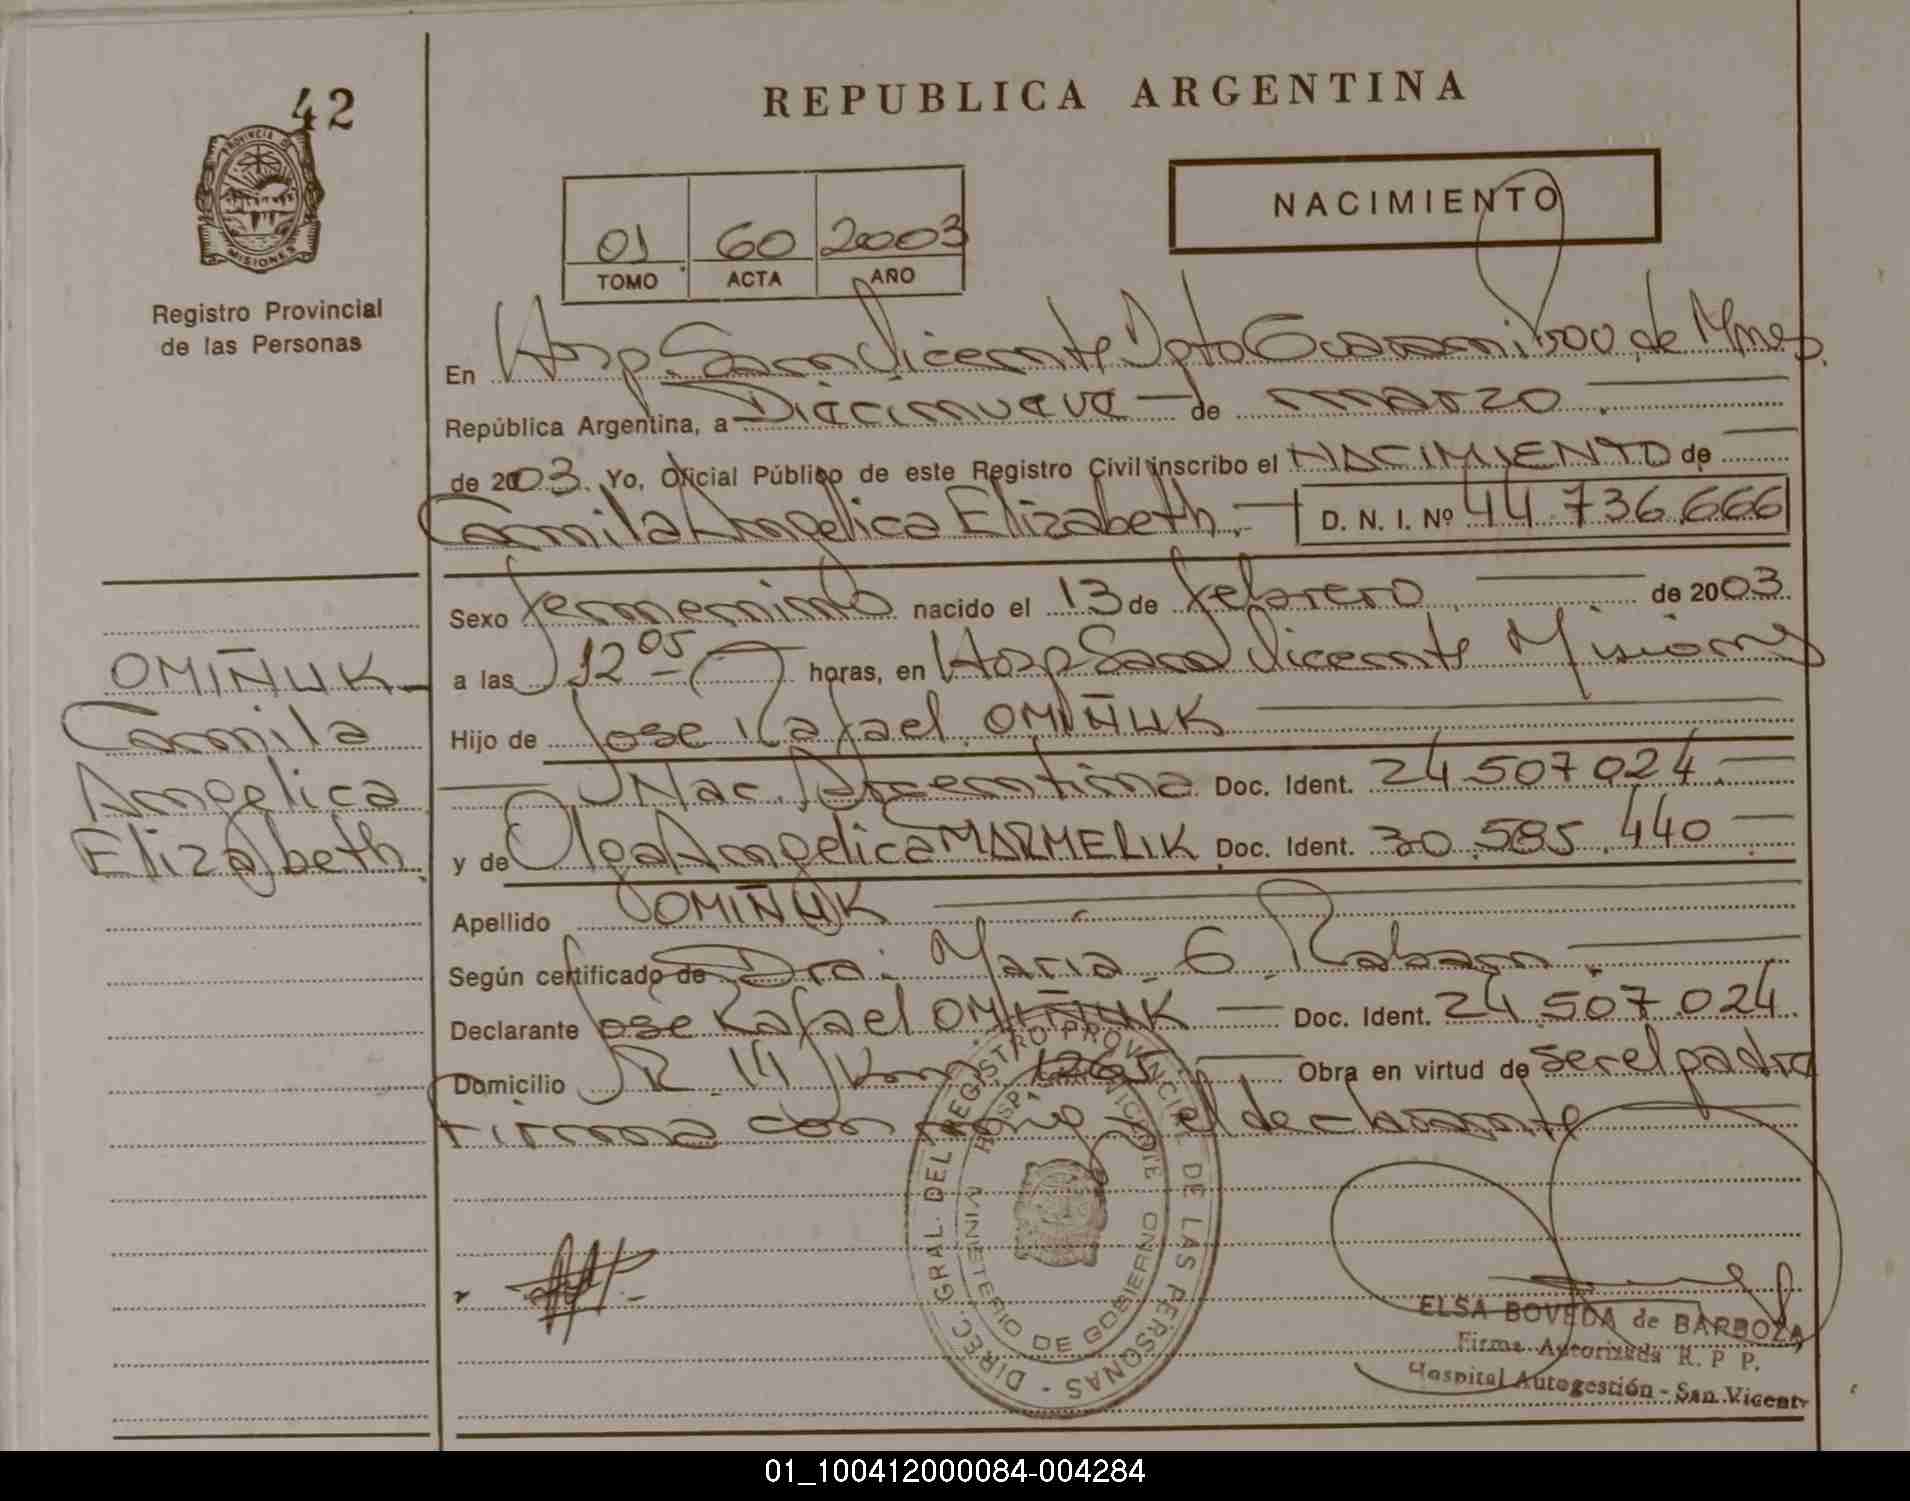 42
REPUBLICA ARGENTINA
PROVINCIA DE
MISIONES
Registro Provincial
de las Personas
01 60 2003
TOMO ACTA AÑO
NACIMIENTO
En Hosp. San Vicente Dpto Guarani de Mnes.
República Argentina, a Diecinueve de marzo
de 2003. Yo, Oficial Público de este Registro Civil inscribo el NACIMIENTO de
Camila Angelica Elizabeth. D. N. I. Nº 44.736.666
Sexo femenino nacido el 13 de febrero de 2003.
a las 12 05 horas, en Hosp San Vicente Misiones
Hijo de Jose Rafael OMIÑUK
Nac. Argentina Doc. Ident. 24.507.024
y de Olga Angelica MARMELIK Doc. Ident. 30.585.440
Apellido OMIÑUK
Según certificado de Dra. Maria G.
Declarante Jose Rafael OMIÑUK Doc. Ident. 24.507.024
Domicilio R. 14 Km 1265 Obra en virtud de ser el padre
Firma con migo el declarante
OMIÑUK
Camila
Angelica
Elizabeth.
DIREC. GRAL. DEL REGISTRO PROVINCIAL DE LAS PERSONAS
MINISTERIO DE GOBIERNO
ELSA BOVEDA de BARBOZA
Firma Autorizada R. P P.
Hospital Autogestión - San Vicente
01_100412000084-004284